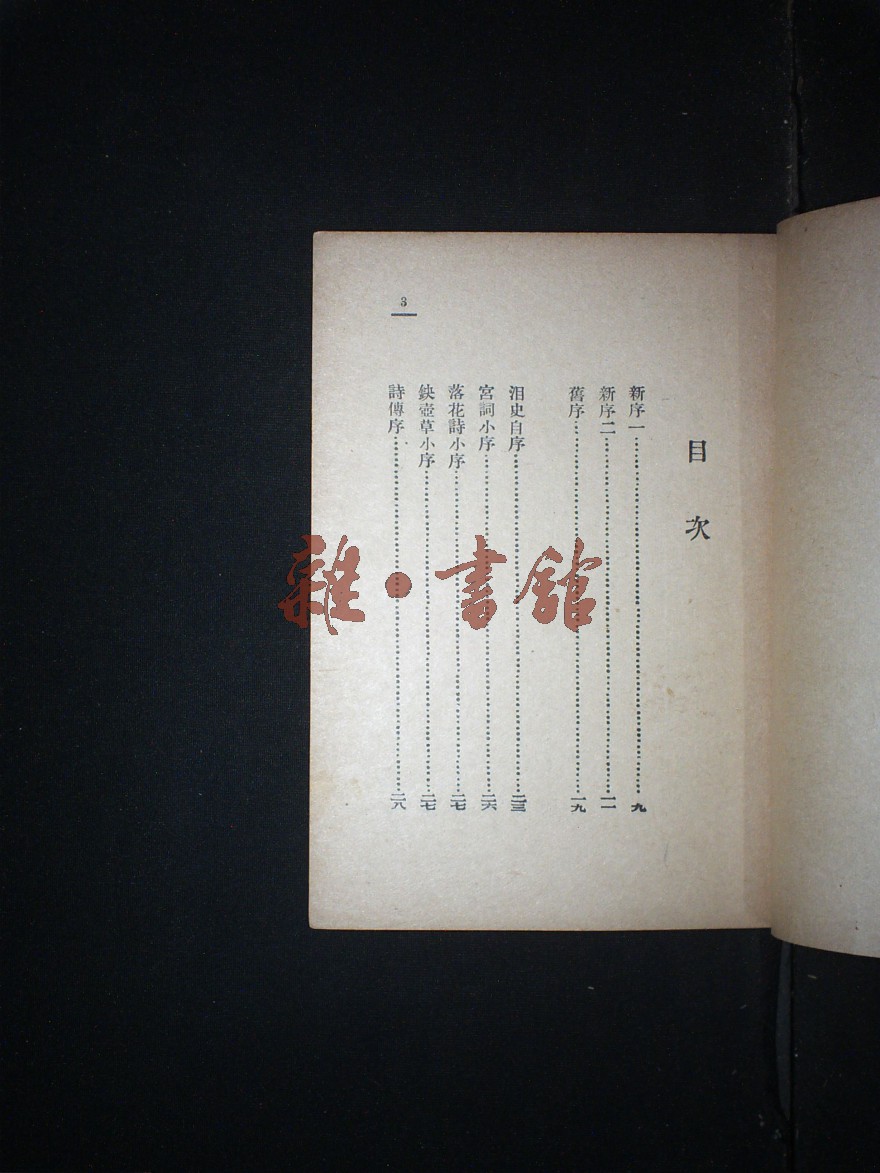 目次
新序一……九
新序二……一一
舊序……一九
泪史自序……二三
宮詞小序……二六
落花詩小序……二七
缺壺草小序……二七
詩傳序……二八
3
雜·書館